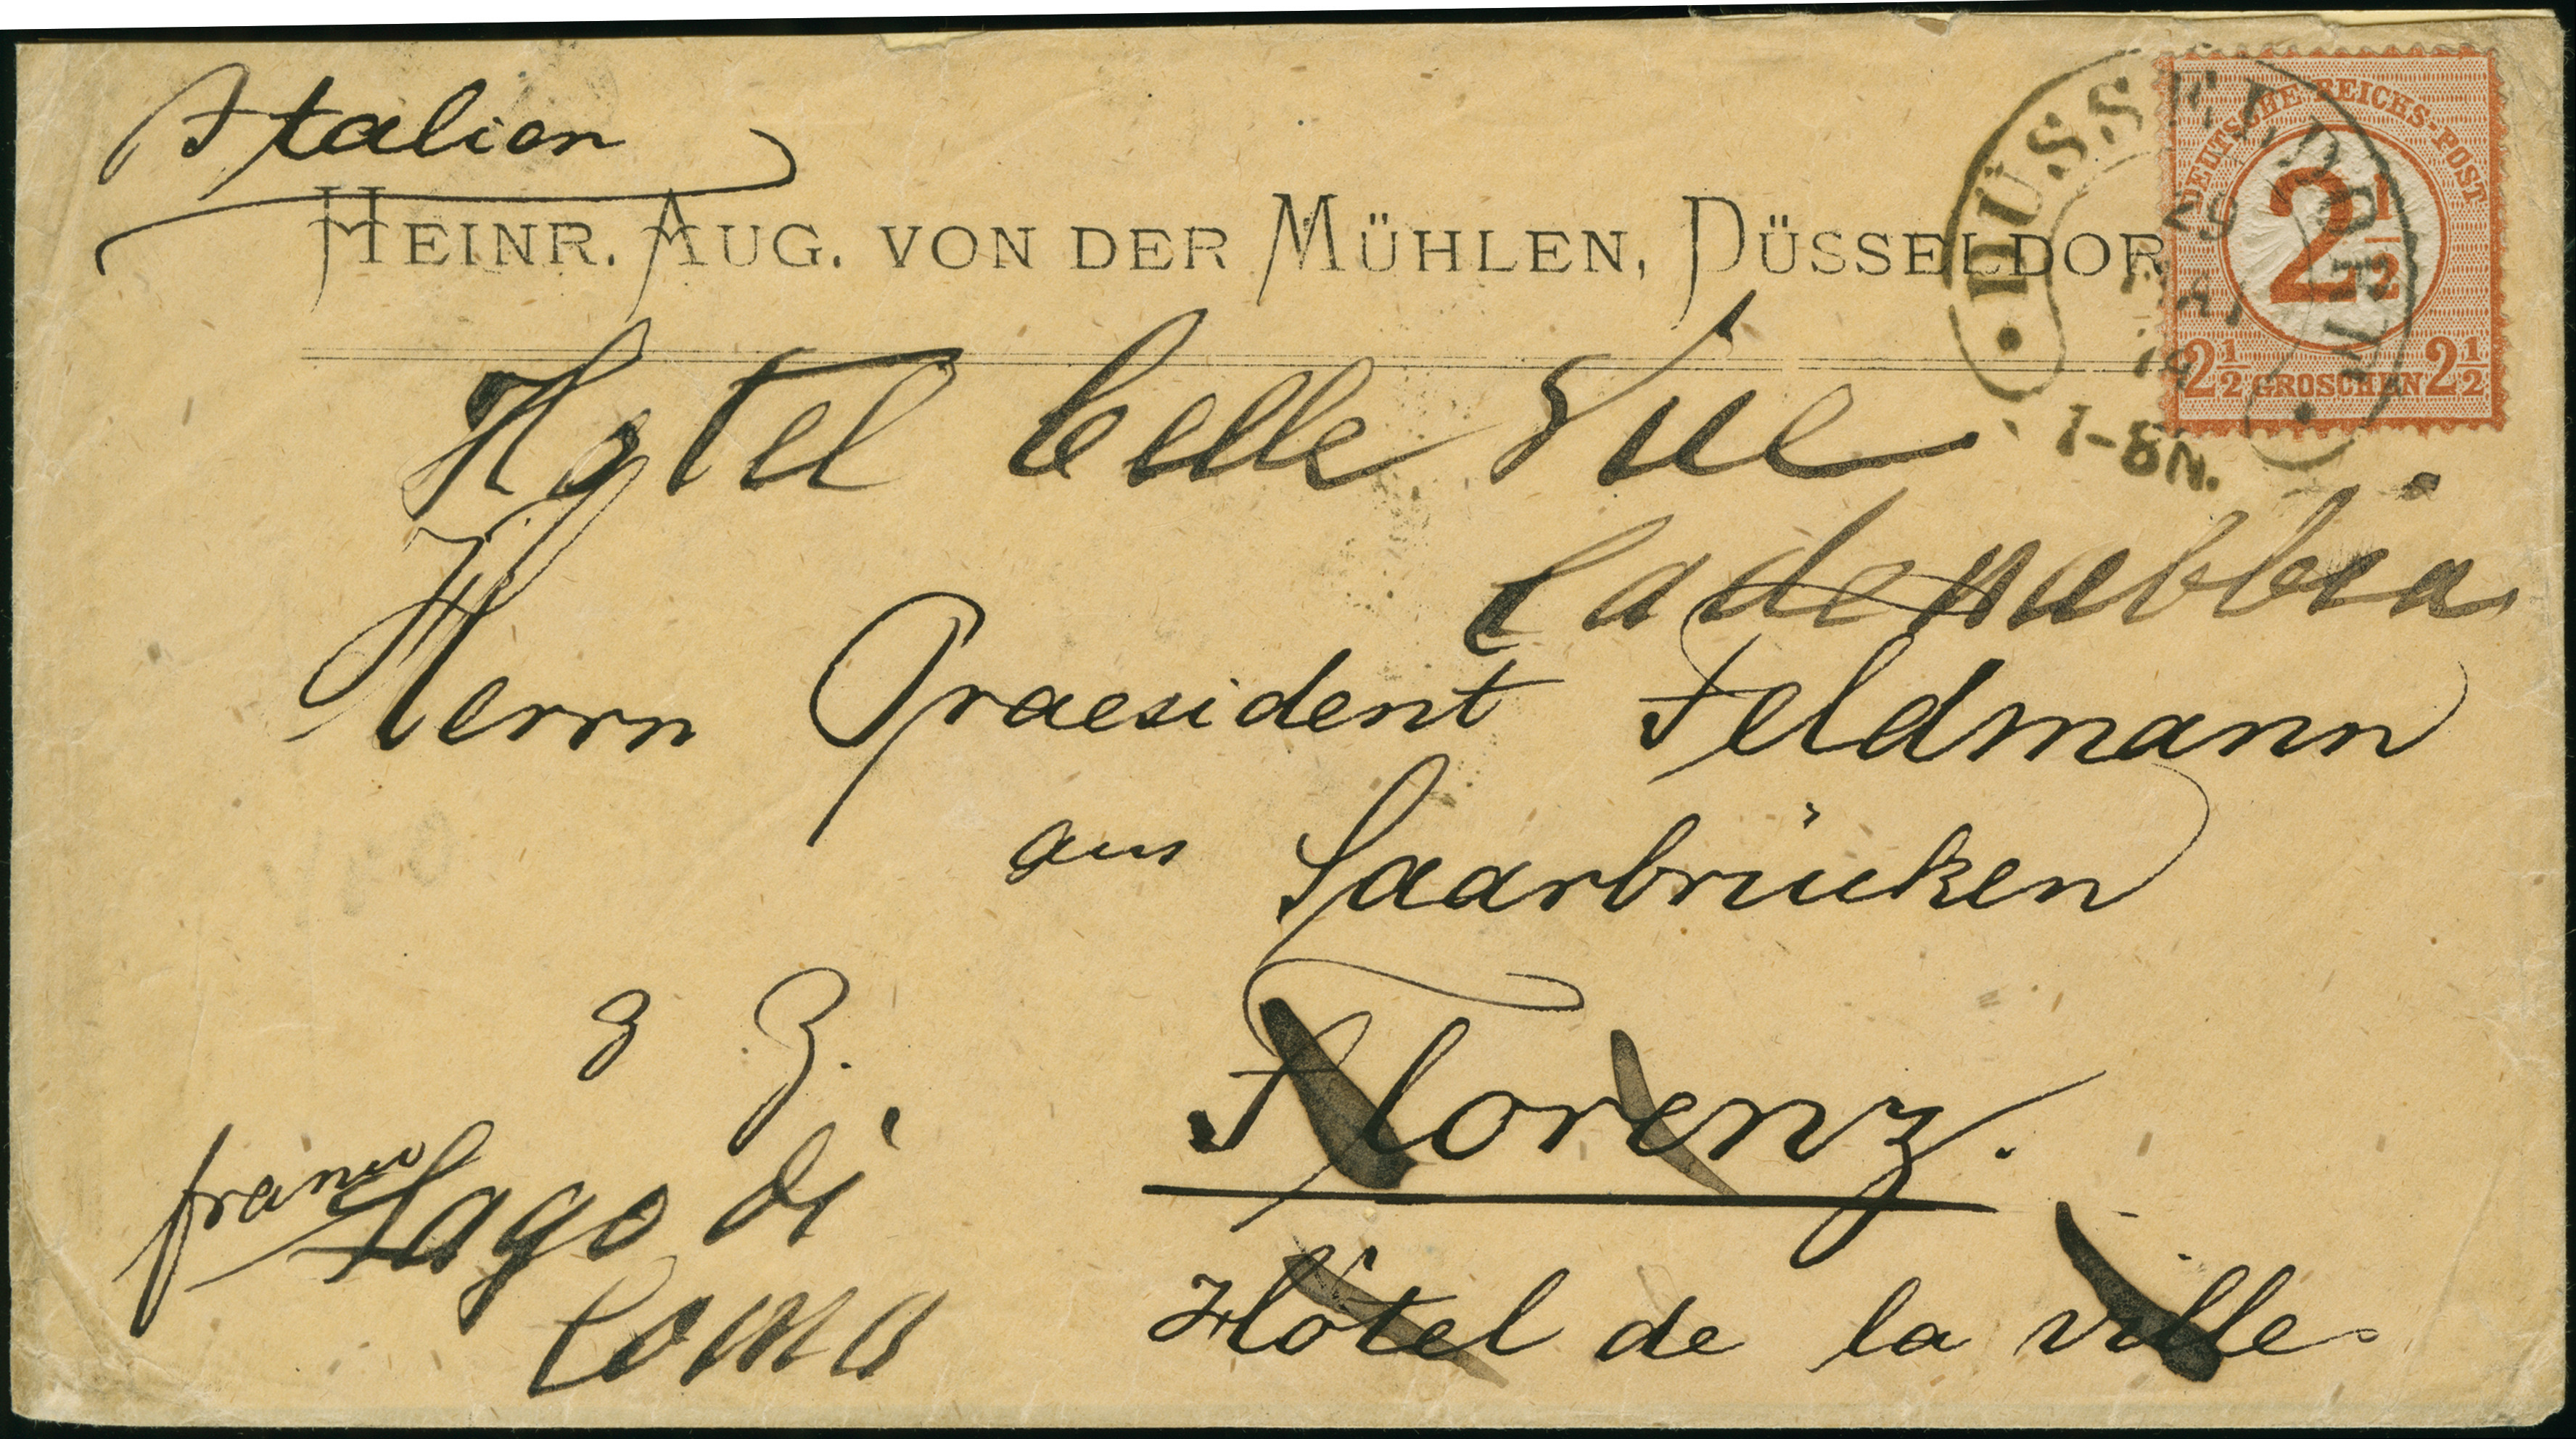 Italien
HEINR. AUG. VON DER MÜHLEN, DÜSSELDOR
DÜSSELDORF
DEUTSCHE REICHS-POST
2 1/2
2 1/2 GROSCHEN 2 1/2
29
MAI
7-8N.
Hotel belle Vue
Cadenabbia
Herrn Praesident Feldmann
aus Saarbrücken
z Z.
Florenz.
franco
Lago di
Como
Hôtel de la ville.